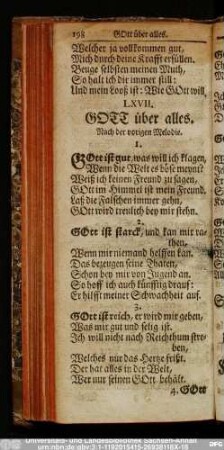 198 GOtt über alles.
Welcher ja vollkommen gut,
Mich durch deine Krafft erfüllen.
Beuge selbsten meinen Muth,
So halt ich dir immer still:
Und mein Looß ist: Wie GOtt will.
LXVII.
GOTT über alles.
Nach der vorigen Melodie.
1.
GOtt ist gut, was will ich klagen,
Wenn die Welt es böse meynt?
Weiß ich keinen Freund zu sagen,
GOtt im Himmel ist mein Freund.
Laß die Falschen immer gehn,
GOtt wird treulich bey mir stehn.
2.
GOtt ist starck, und kan mir ra-
then,
Wenn mir niemand helffen kan.
Das bezeugen seine Thaten,
Schon bey mir von Jugend an.
So hoff ich auch künfftig drauf:
Er hilfft meiner Schwachheit auf.
3.
GOtt ist reich, er wird mir geben,
Was mir gut und selig ist.
Ich will nicht nach Reichthum stre-
ben,
Welches nur das Hertze frißt.
Der hat alles in der Welt,
Wer nur seinen GOtt behält.
4. GOtt
Universitäts- und Landesbibliothek Sachsen-Anhalt